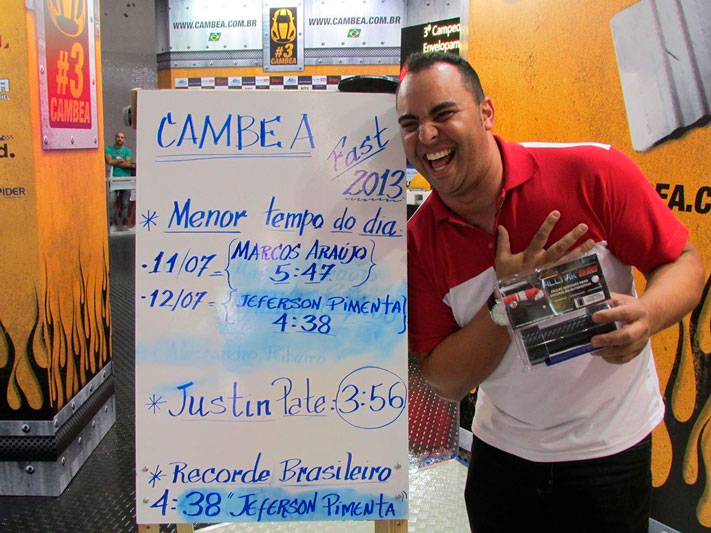 WWW.CAMBEA.COM.BR
#3
CAMBEA
WWW.CAMBEA.COM.BR
3º Campeo
Envelopam
#3
CAMBEA
d.
PIDER
CAMBEA
Fast
2013
* Menor tempo do dia.
· 11/07 = {MARCOS ARAÚJO
5:47}
· 12/07 = {JEFERSON PIMENTA
4:38}
Alessandro Ribeiro
* Justin Pate: 3:56
* Recorde Brasileiro
4:38 "JEFERSON PIMENTA"
ALLTAK
EA.COM.BR